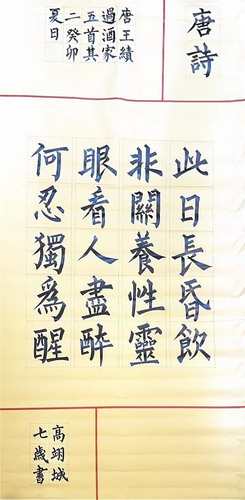 唐詩
唐王績
過酒家
五首其
二癸卯
夏日
此日長昏飲
非關養性靈
眼看人盡醉
何忍獨為醒
高翊城
七歲書